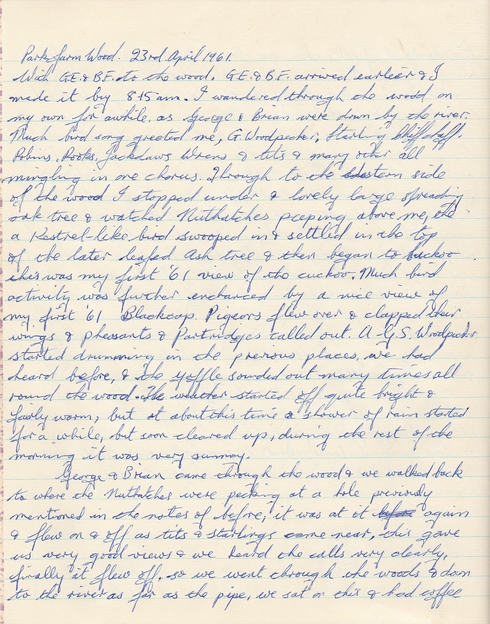 Park Farm Wood. 23rd April 1961.
With G.E. & B.F. to the wood, G.E. & B.F. arrived earlier & I
made it by 8.15am. I wandered through the wood on
my own for awhile, as George & Brian were down by the river.
Much bird song greeted me, G. Woodpecker, Starling Chiffchaff.
Robins. Rooks, Jackdaws Wrens & tits & many other all
mingling in one chorus. Through to the eastern side
of the wood I stopped under a lovely large spreading
oak tree & watched Nuthatches peeping above me, the
a Kestrel-like bird swooped in & settled in the top
of the later leafed Ash tree & then began to cuckoo
this was my first '61 view of the cuckoo. Much bird
activity was further enchanced by a nice view of
my first '61 Blackcap. Pigeons flew over & clapped their
wings & pheasants & Partridges called out. A G.S. Woodpecker
started drumming in the previous places, we had
heard before, & the yoffle sounded out many times all
round the wood. The weather started off quite bright &
fairly worm, but at about this time a shower of rain started
for a while, but soon cleared up, during the rest of the
morning it was very sunny.
George & Brian came through the wood & we walked back
to where the Nuthatches were pecking at a hole previously
mentioned in the notes of before, it was at it before again
& flew on & off as tits & starlings came near, this gave
us very good views & we heard the calls very clearly,
finally it flew off, so we went through the woods & down
to the river as far as the pipe, we sat on this & had coffee